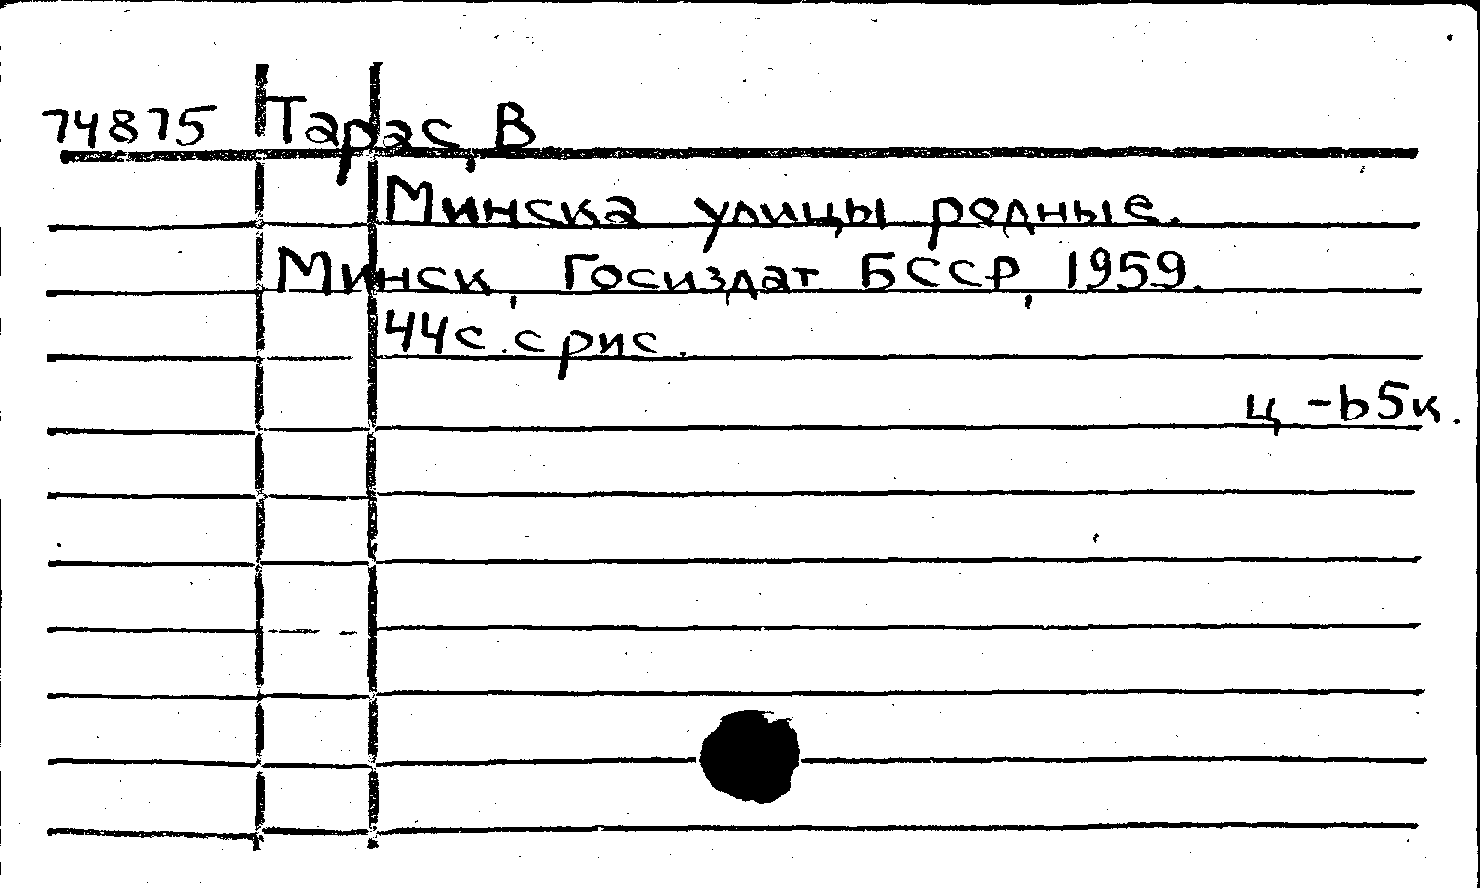 74875 Тарас, В
Минска улицы родные.
Минск, Госиздат БССР, 1959.
44с. с рис.
ц -b5к.